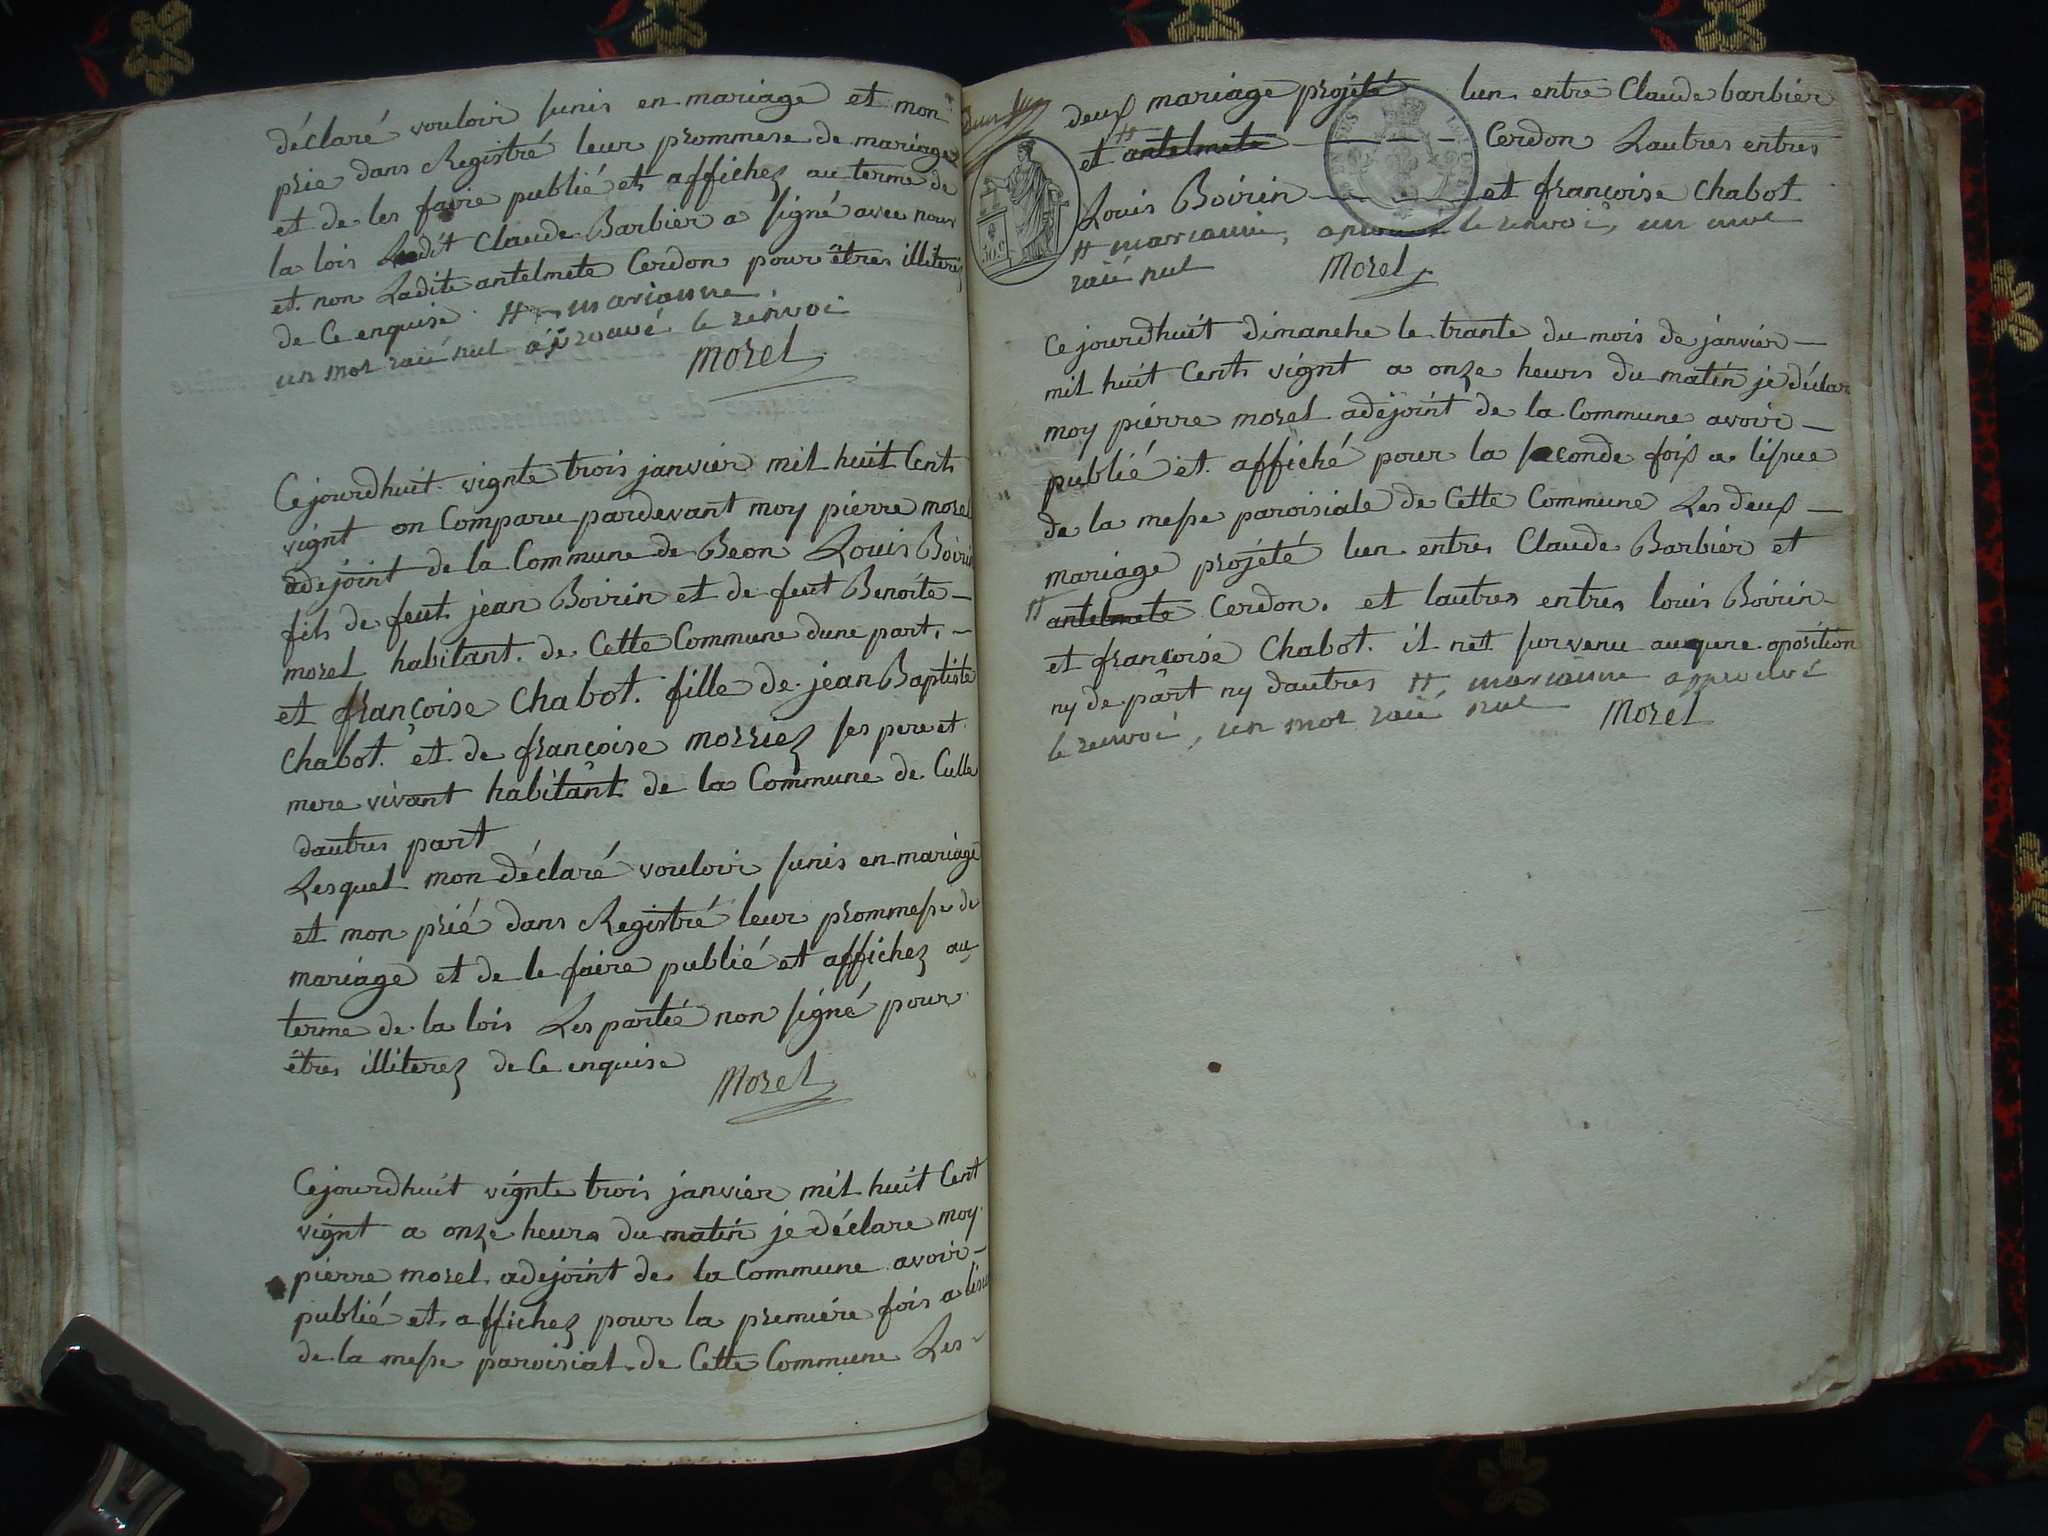 déclaré vouloir sunis en mariage et mon
prie dans Registré leur prommese de mariage
et de les faire publié et affichez au terme de
la lois Ledit Claude Barbier a signé avec nous
et non Ladite antelmete Cerdon pour êtres illiterez
de Ce enquise # marianne.
un mot raié nul aprouvé le renvoi
Morel
Cejourdhuit vignte trois janvier mil huit Cent
vignt on Comparu pardevant moy pierre morel
adejoint de la Commune de Beon Louis Boirin
fils de feut jean Boirin et de feut Benoite
morel habitant de Cette Commune dune part,
et françoise Chabot fille de jean Baptiste
Chabot et de françoise morriez ses pere et
mere vivant habitant de la Commune de Culle
dautres part
Lesquel mon déclaré vouloir sunis en mariage
et mon prié dans Registré leur prommesse de
mariage et de le faire publié et affichez au
terme de la lois Les partié non signé pour
êtres illiterez de Ce enquise
Morel
Cejourdhuit vignte trois janvier mil huit Cent
vignt a onze heurs du matin je déclare moy
pierre morel adejoint de la Commune avoir
publié et affichez pour la premiére fois a lisue
de la messe paroisial de Cette Commune Les
deux mariage projeté lun entre Claude barbier
et # antelmete Cerdon Lautres entres
Louis Boirin et françoise Chabot
# marianne, aprouvé le renvoi, un mot
raié nul Morel
30 C
Cejourdhuit dimanche le trante du mois de janvier
mil huit Cent vignt a onze heurs du matin je déclar
moy piérre morel adejoint de la Commune avoir
publié et affiché pour la seconde fois a lissue
de la messe paroisiale de Cette Commune Les deux
mariage projété lun entres Claude Barbier et
# antelmete Cerdon. et lautres entres louis Boirin
et françoise Chabot. il net survenu auqune oposition
ny de part ny dautres #, marianne approuvé
le renvoi, un mot raié nul Morel